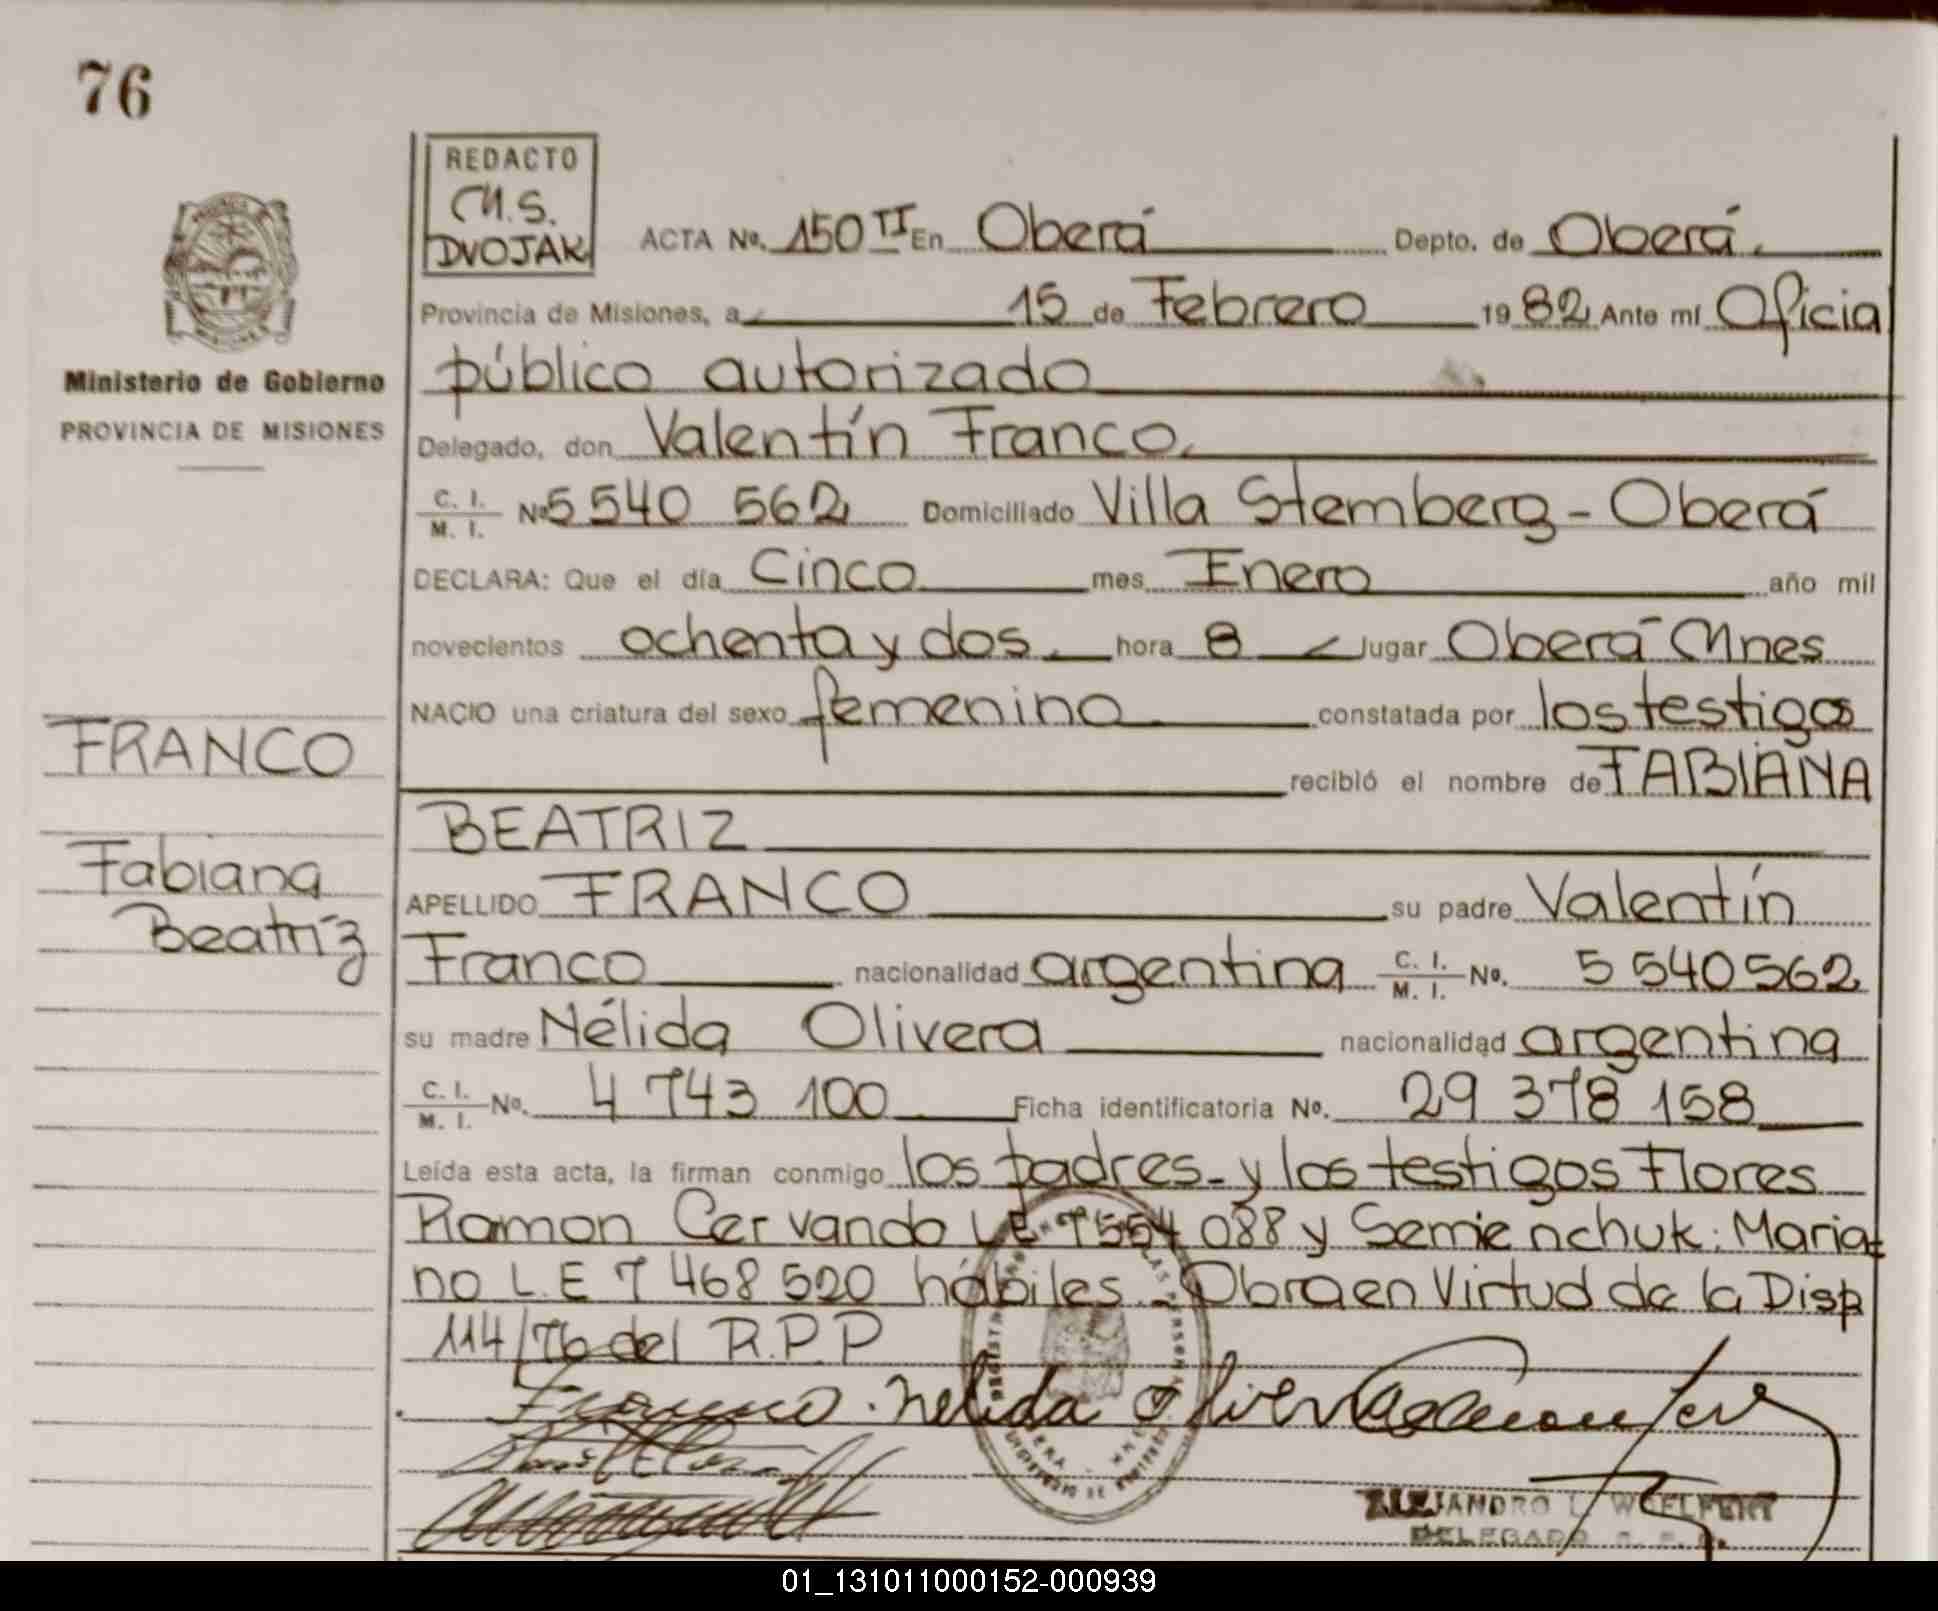 76
REDACTO
M.S.
DVOJAK
ACTA No. 150 TI En Oberá Depto. de Oberá.
Provincia de Misiones, a 15 de Febrero 1982 Ante mí Oficial
público autorizado
Ministerio de Gobierno
PROVINCIA DE MISIONES
Delegado, don Valentín Franco.
C. I. / M. I. Nº 5 540 562 Domiciliado Villa Stemberg - Oberá
DECLARA: Que el día Cinco mes Enero año mil
novecientos ochenta y dos hora 8 lugar Oberá Mnes
NACIO una criatura del sexo femenino constatada por los testigos
recibió el nombre de FABIANA
BEATRIZ
FRANCO
Fabiana
Beatríz
APELLIDO FRANCO su padre Valentín
Franco nacionalidad argentina C. I. / M. I. No. 5 540 562
su madre Nélida Olivera nacionalidad argentina
C. I. / M. I. No. 4 743 100 Ficha identificatoria No. 29 378 158
Leída esta acta, la firman conmigo los padres - y los testigos Flores
Ramon Cervando LE 7554 088 y Semienchuk. Maria=
no L.E 7 468 520 hábiles - Obra en Virtud de la Disp
114/76 del R.P.P
Franco . nelida Olivera
ALEJANDRO L. WOELFERT
DELEGADO
01_131011000152-000939